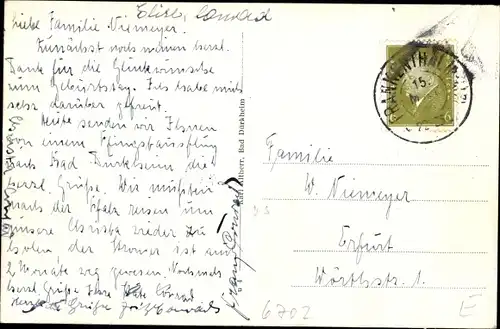 Elise, Conrad
Liebe Familie Niemeyer.
Zunächst noch meinen herzl.
Dank für die Glückwünsche
zum Geburtstag. Ich habe mich
sehr darüber gefreut.
Heute senden wir Ihnen
von einem Pfingstausflug
nach Bad Dürkheim die
herzl. Grüße. Wir mußten
nach der Pfalz reisen um
unsere Christa wieder zu
holen die
2 Monate weg gewesen. Nochmals
herzl. Grüße Ihre Conrad
Grüße
Franz Conrad
Karl Altherr, Bad Dürkheim
FRANKENTHAL
15.
6
Familie
W. Niemeyer
Erfurt
Wörthstr. 1.
6702
E